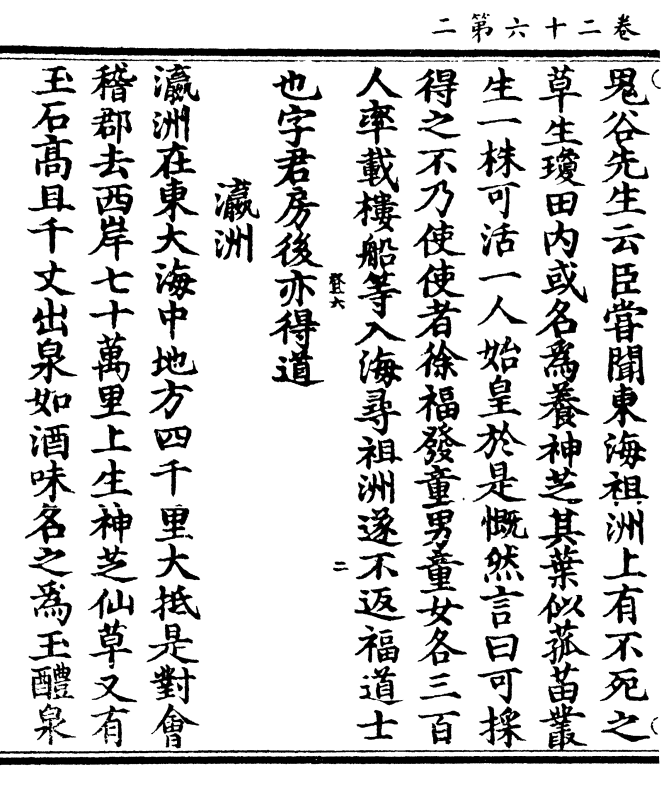 卷二十六第二
鬼谷先生云臣嘗聞東海祖洲上有不死之
草生瓊田内或名爲養神芝其葉似菰苗叢
生一株可活一人始皇於是慨然言曰可採
得之不乃使使者徐福發童男童女各三百
人率載樓船等入海尋祖洲遂不返福道士
也字君房後亦得道
瀛洲
瀛洲在東大海中地方四千里大抵是對會
稽郡去西岸七十萬里上生神芝仙草又有
玉石髙且千丈出泉如酒味名之爲玉醴泉
二